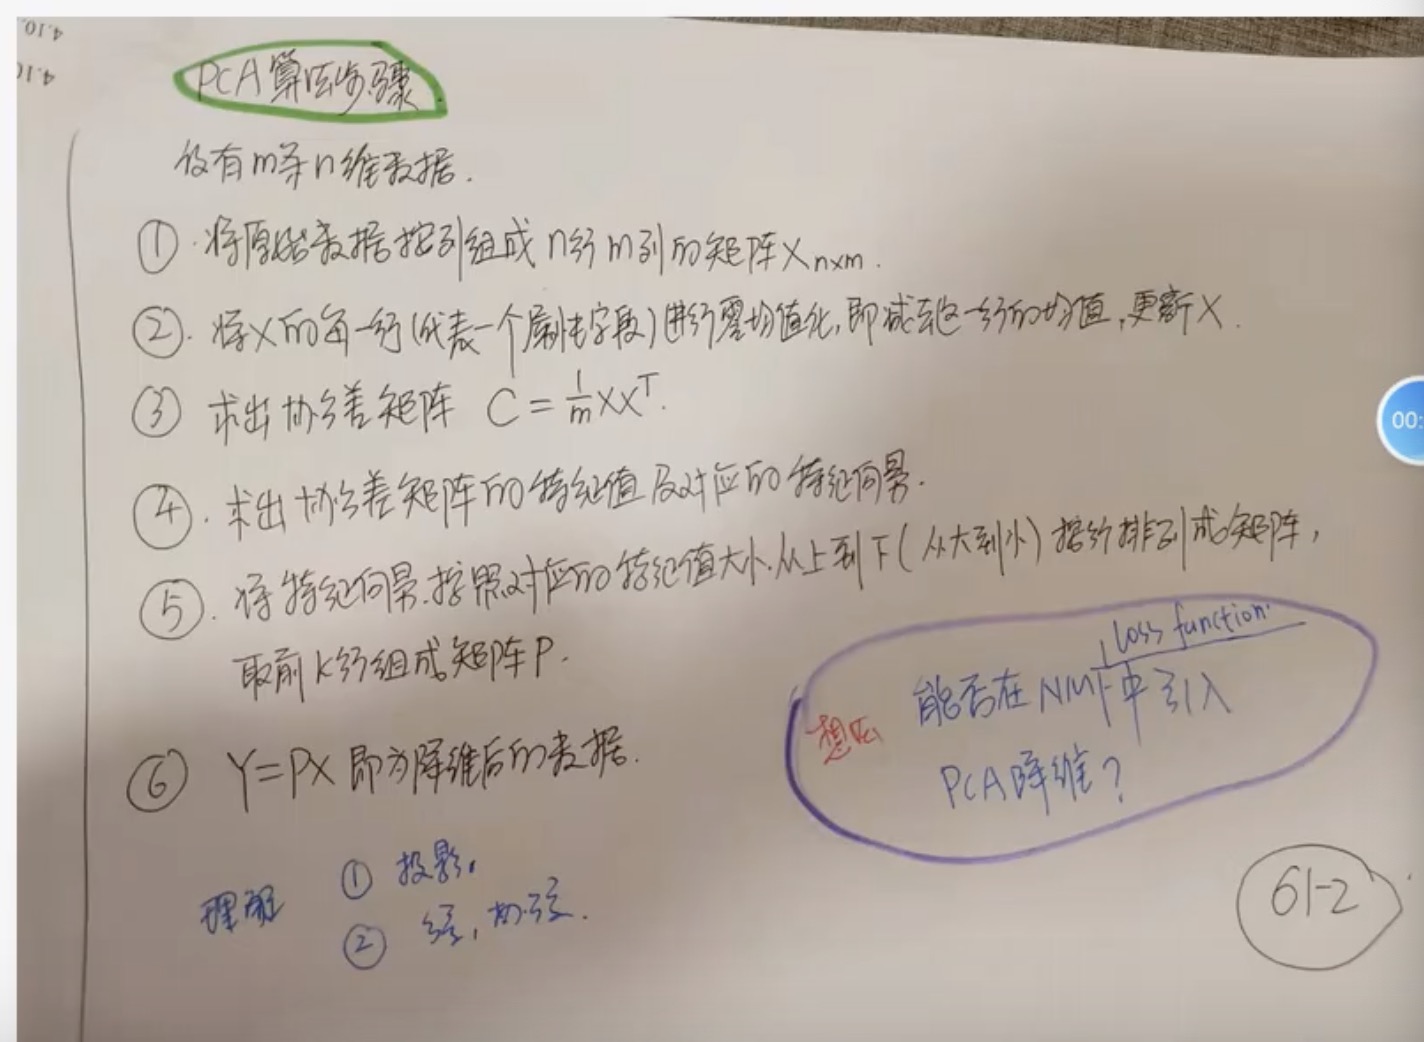 4.10.
4.10
PCA算法步骤
设有m条n维数据.
① 将原始数据按列组成n行m列的矩阵Xn×m.
②. 将X的每一行(代表一个属性字段)进行零均值化,即减去这一行的均值,更新X.
③ 求出协方差矩阵 C=1/m XXᵀ.
④. 求出协方差矩阵的特征值及对应的特征向量.
⑤. 将特征向量按照对应的特征值大小从上到下(从大到小)按行排列成矩阵,
取前k行组成矩阵P.
⑥ Y=PX 即为降维后的数据.
loss function
想法 能否在NMF中引入
PCA降维?
理解 ① 投影.
② 方差,协方差.
61-2
00: